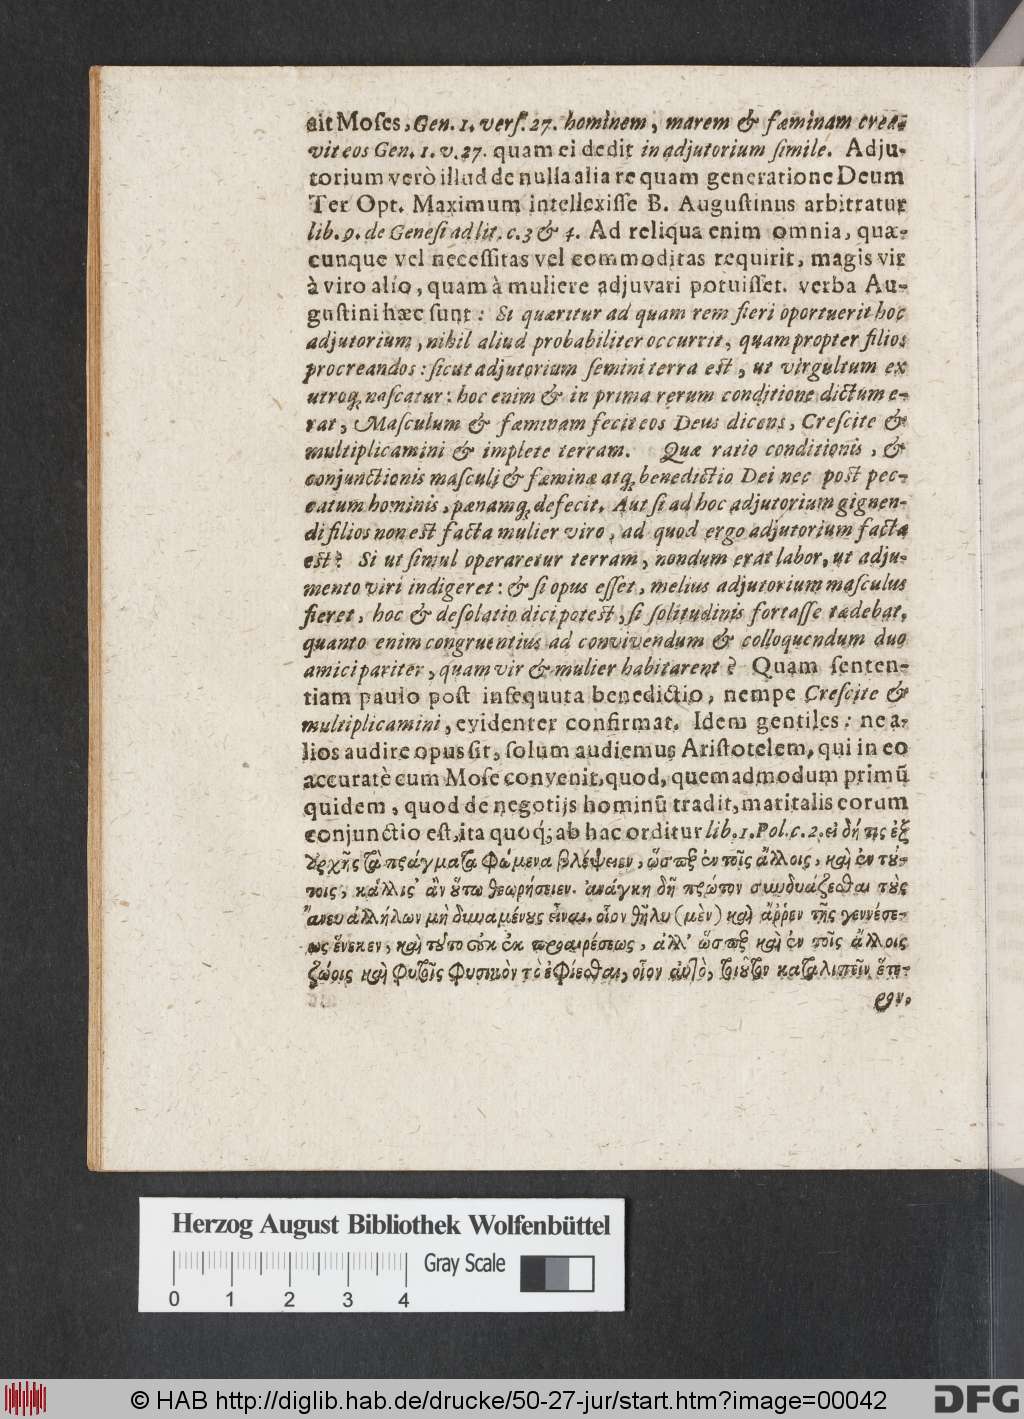 ait Moſes, Gen. 1. verſ. 27. hominem, marem & fæminam crea-
vit eos Gen. 1. v. 27. quam ei dedit in adjutorium ſimile. Adju-
torium verò illud de nulla alia re quam generatione Deum
Ter Opt. Maximum intellexiſſe B. Auguſtinus arbitratur
lib. 9. de Geneſi ad lit. c. 3 & 4. Ad reliqua enim omnia, quæ-
cunque vel neceſſitas vel commoditas requirit, magis vir
à viro alio, quam à muliere adjuvari potuiſſet. verba Au-
guſtini hæc ſunt: Si quæritur ad quam rem fieri oportuerit hoc
adjutorium, nihil aliud probabiliter occurrit, quam propter filios
procreandos: ſicut adjutorium ſemini terra eſt, ut virgultum ex
utroq; naſcatur: hoc enim & in prima rerum conditione dictum e-
rat, Maſculum & fæminam fecit eos Deus dicens, Creſcite &
multiplicamini & implete terram. Quæ ratio conditionis, &
conjunctionis maſculi & fæminæ atq; benedictio Dei nec poſt pec-
catum hominis, pænamq; defecit. Aut ſi ad hoc adjutorium gignen-
di filios non eſt facta mulier viro, ad quod ergo adjutorium facta
eſt? Si ut ſimul operaretur terram, nondum erat labor, ut adju-
mento viri indigeret: & ſi opus eſſet, melius adjutorium maſculus
fieret, hoc & deſolatio dici poteſt, ſi ſolitudinis fortaſſe tædebat,
quanto enim congruentius ad convivendum & colloquendum duo
amici pariter, quam vir & mulier habitarent? Quam ſenten-
tiam paulo poſt inſequuta benedictio, nempe Creſcite &
multiplicamini, evidenter confirmat. Idem gentiles: ne a-
lios audire opus ſit, ſolum audiemus Ariſtotelem, qui in eo
accuratè cum Moſe convenit, quod, quemadmodum primũ
quidem, quod de negotijs hominũ tradit, maritalis eorum
conjunctio eſt, ita quoq́; ab hac orditur lib. 1. Pol. c. 2. εἰ δή τις ἐξ
ἀρχῆς τὰ πράγματα φυόμενα βλέψειεν, ὥσπερ ἐν τοῖς ἄλλοις, καὶ ἐν τού-
τοις, κάλλιστ' ἂν οὕτω θεωρήσειεν. ἀνάγκη δὴ πρῶτον συνδυάζεσθαι τοὺς
ἄνευ ἀλλήλων μὴ δυναμένους εἶναι, οἷον θῆλυ (μὲν) καὶ ἄῤῥεν τῆς γεννέσε-
ως ἕνεκεν, καὶ τοῦτο οὐκ ἐκ προαιρέσεως, ἀλλ' ὥσπερ καὶ ἐν τοῖς ἄλλοις
ζώοις καὶ φυτοῖς φυσικὸν τὸ ἐφίεσθαι, οἷον αὐτὸ, τοιοῦτον καταλιπεῖν ἕτε-
ρον.
Herzog August Bibliothek Wolfenbüttel
Gray Scale
0 1 2 3 4
© HAB http://diglib.hab.de/drucke/50-27-jur/start.htm?image=00042
DFG